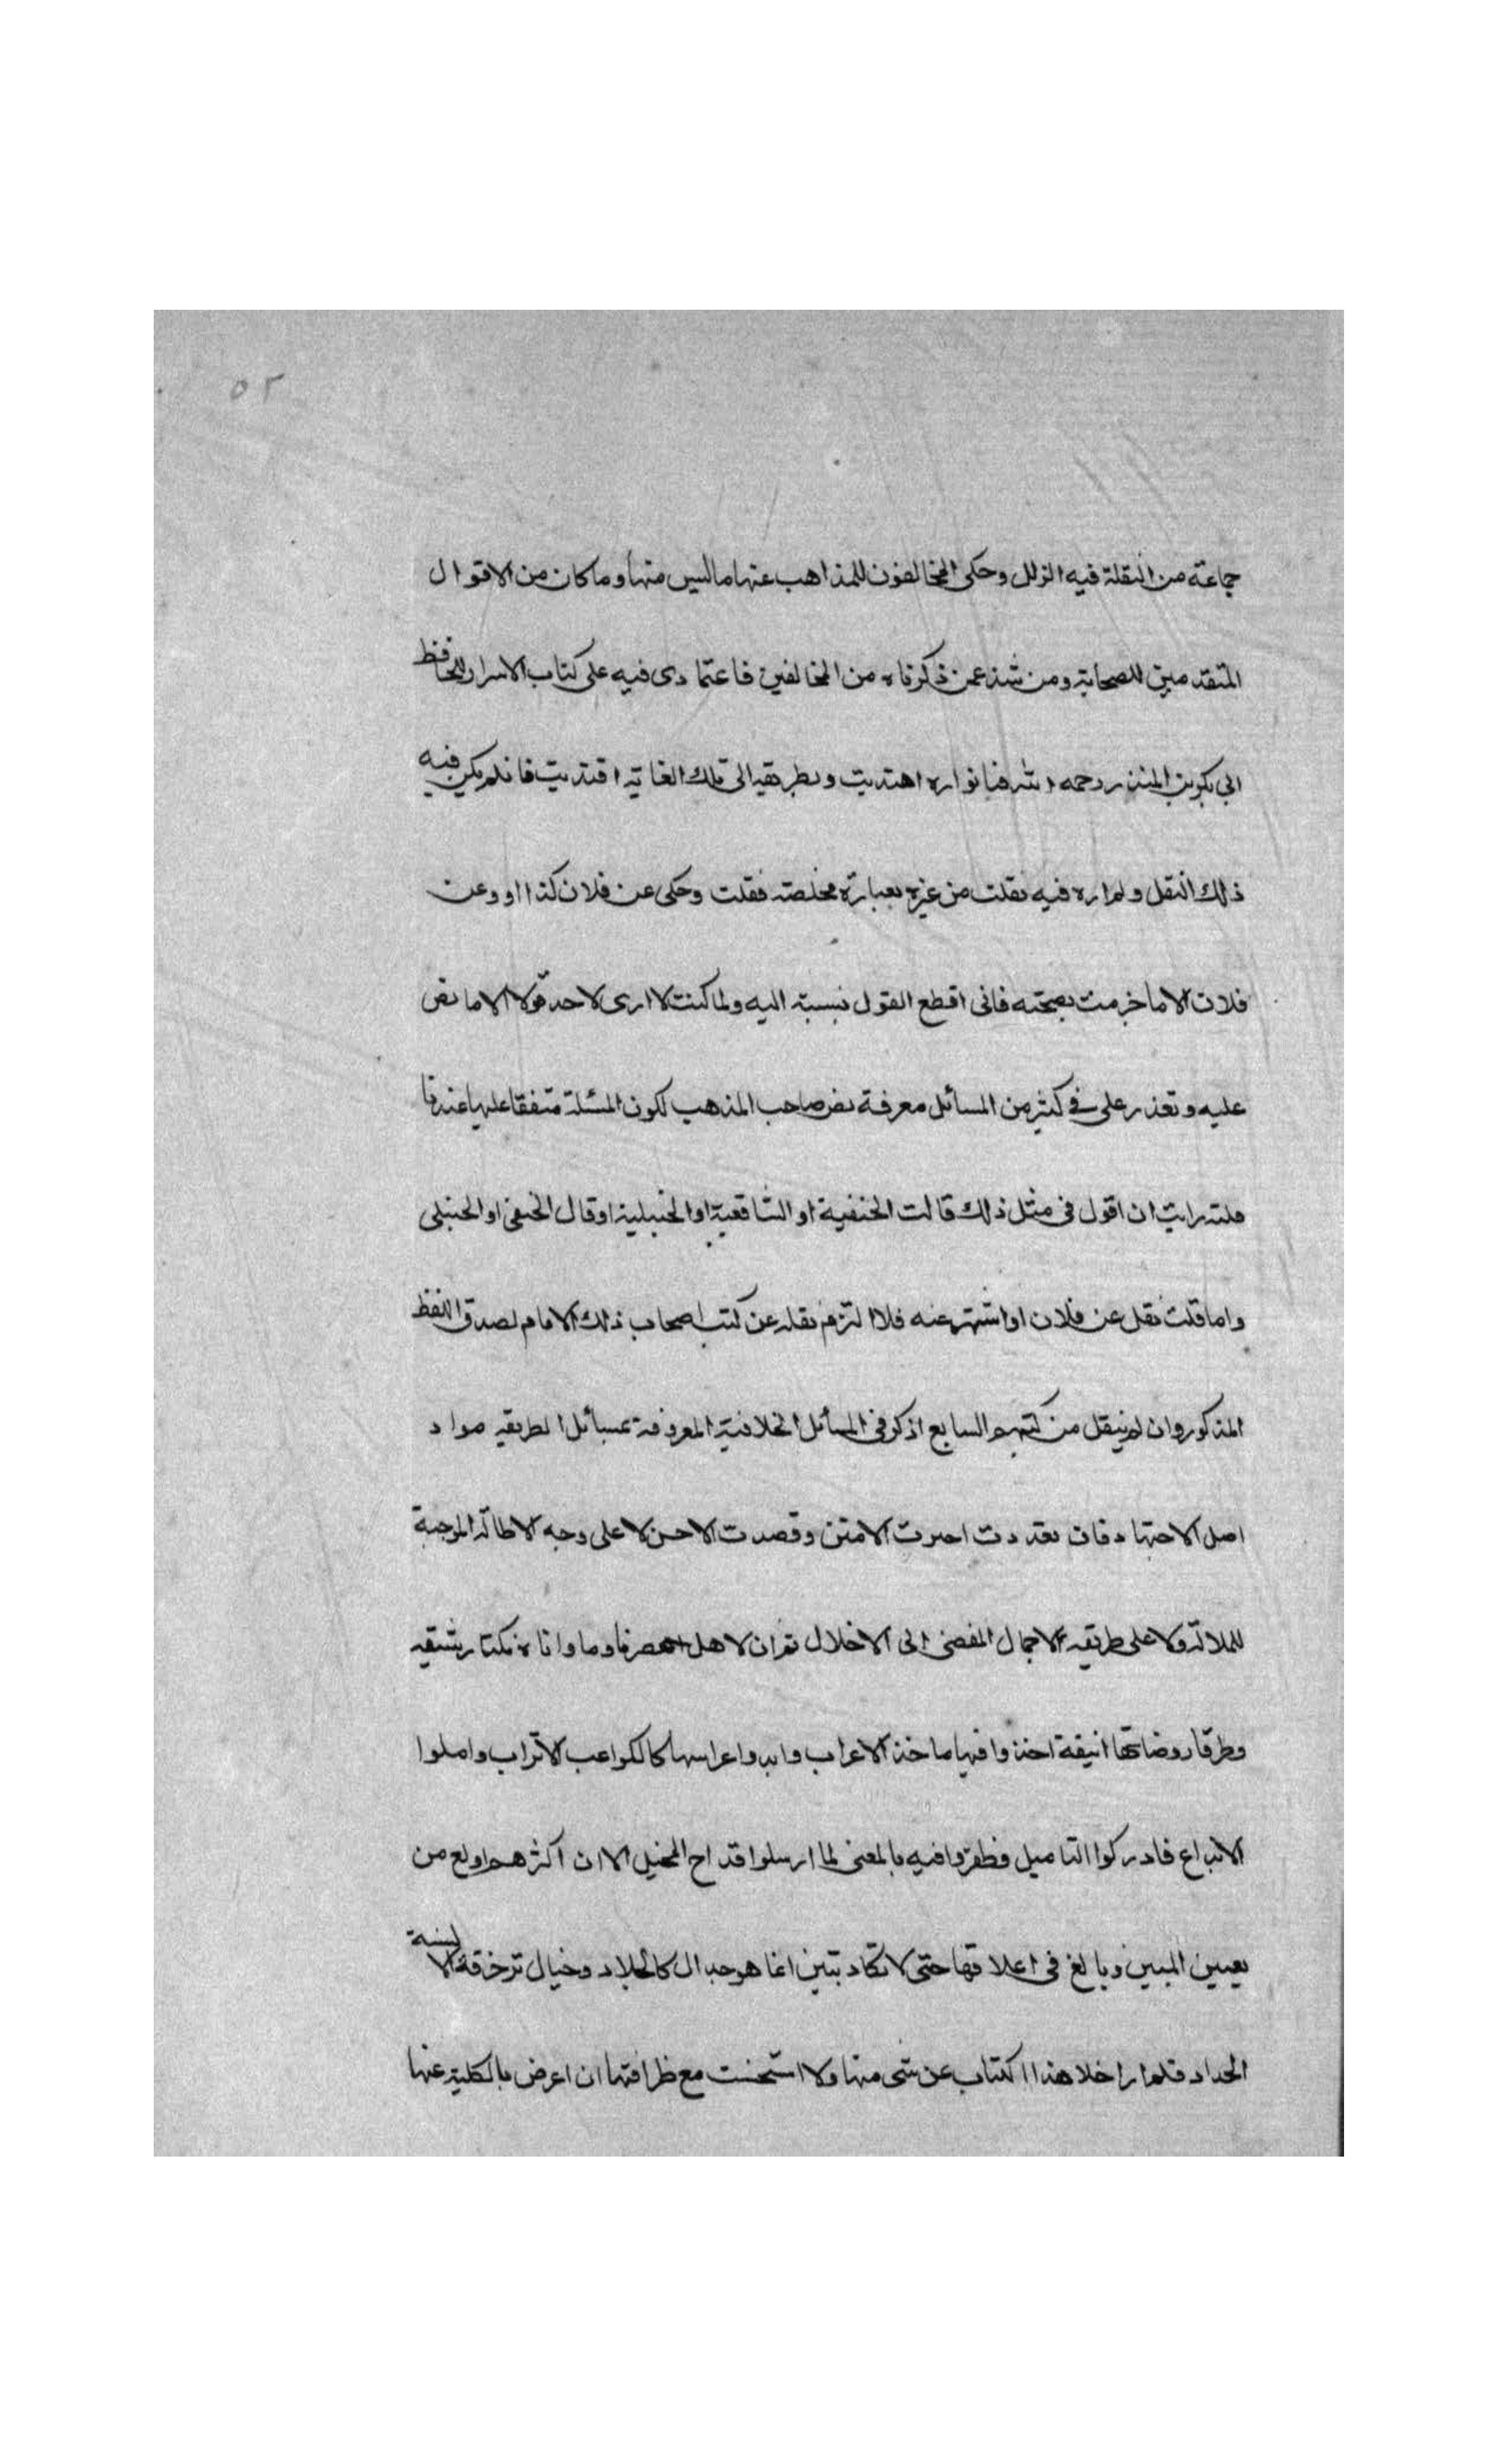 ٥٢
جماعة من النقلة فيه الزلل وحكى المخالفون للمذاهب عنها ما ليس منها وما كان من الاقوال
المتقدمين للصحابة ومن شذ عمن ذكرناه من المخالفين فاعتمادى فيه على كتاب الاسرار للحافظ
ابى بكر بن المنذر رحمه الله فبانواره اهتديت وبطريقه الى تلك الغاية اقتديت فان لم يكن فيه
ذلك النقل ولم اره فيه نقلت من غيره بعبارة مخلصة فقلت وحكى عن فلان كذا او وعن
فلان الا ما جزمت بصحته فانى اقطع القول بنسبته اليه ولما كنت لا ارى لاحد قولا الا ما نص
عليه وتعذر على فى كثير من المسائل معرفة نص صاحب المذهب لكون المسئلة متفقا عليها عندنا
رايت ان اقول فى مثل ذلك قالت الحنفية او الشافعية او الحنبلية او قال الحنفى او الحنبلى
واما قلت نقل عن فلان او اشتهر عنه فلا التزم نقله عن كتب اصحاب ذلك الامام لصدق اللفظ
المذكور وان لم ينقل من كتبهم السابع اذكر فى المسائل الخلافية المعروفة بمسائل الطريقه مواد
اصل الاجتهاد فان تعددت اخترت الامتن وقصدت الاحسن لا على وجه الاطالة الموجبة
للملالة ولا على طريقه الاجمال المفضى الى الاخلال ثم ان لاهل عصرنا وما داناه نكتا رشيقه
وطرقا روضاتها انيقة اخذوا فيها ماخذ الاعراب وابدوا عرايسها كالكواعب الاتراب واملوا
الابداع فادركوا التاميل وظفروا فيه بالمعنى لما ارسلوا قداح المخيل الا ان اكثرهم اولع من
تعيين المبين وبالغ فى اغلاقها حتى لا تكاد تبين انما هو جدال كالجلاد وخيال تزخرفة الالسنة
الحداد فلم ار اخلا هذا الكتاب عن شى منها ولا استحسنت مع ظرافتها ان اعرض بالكلية عنها